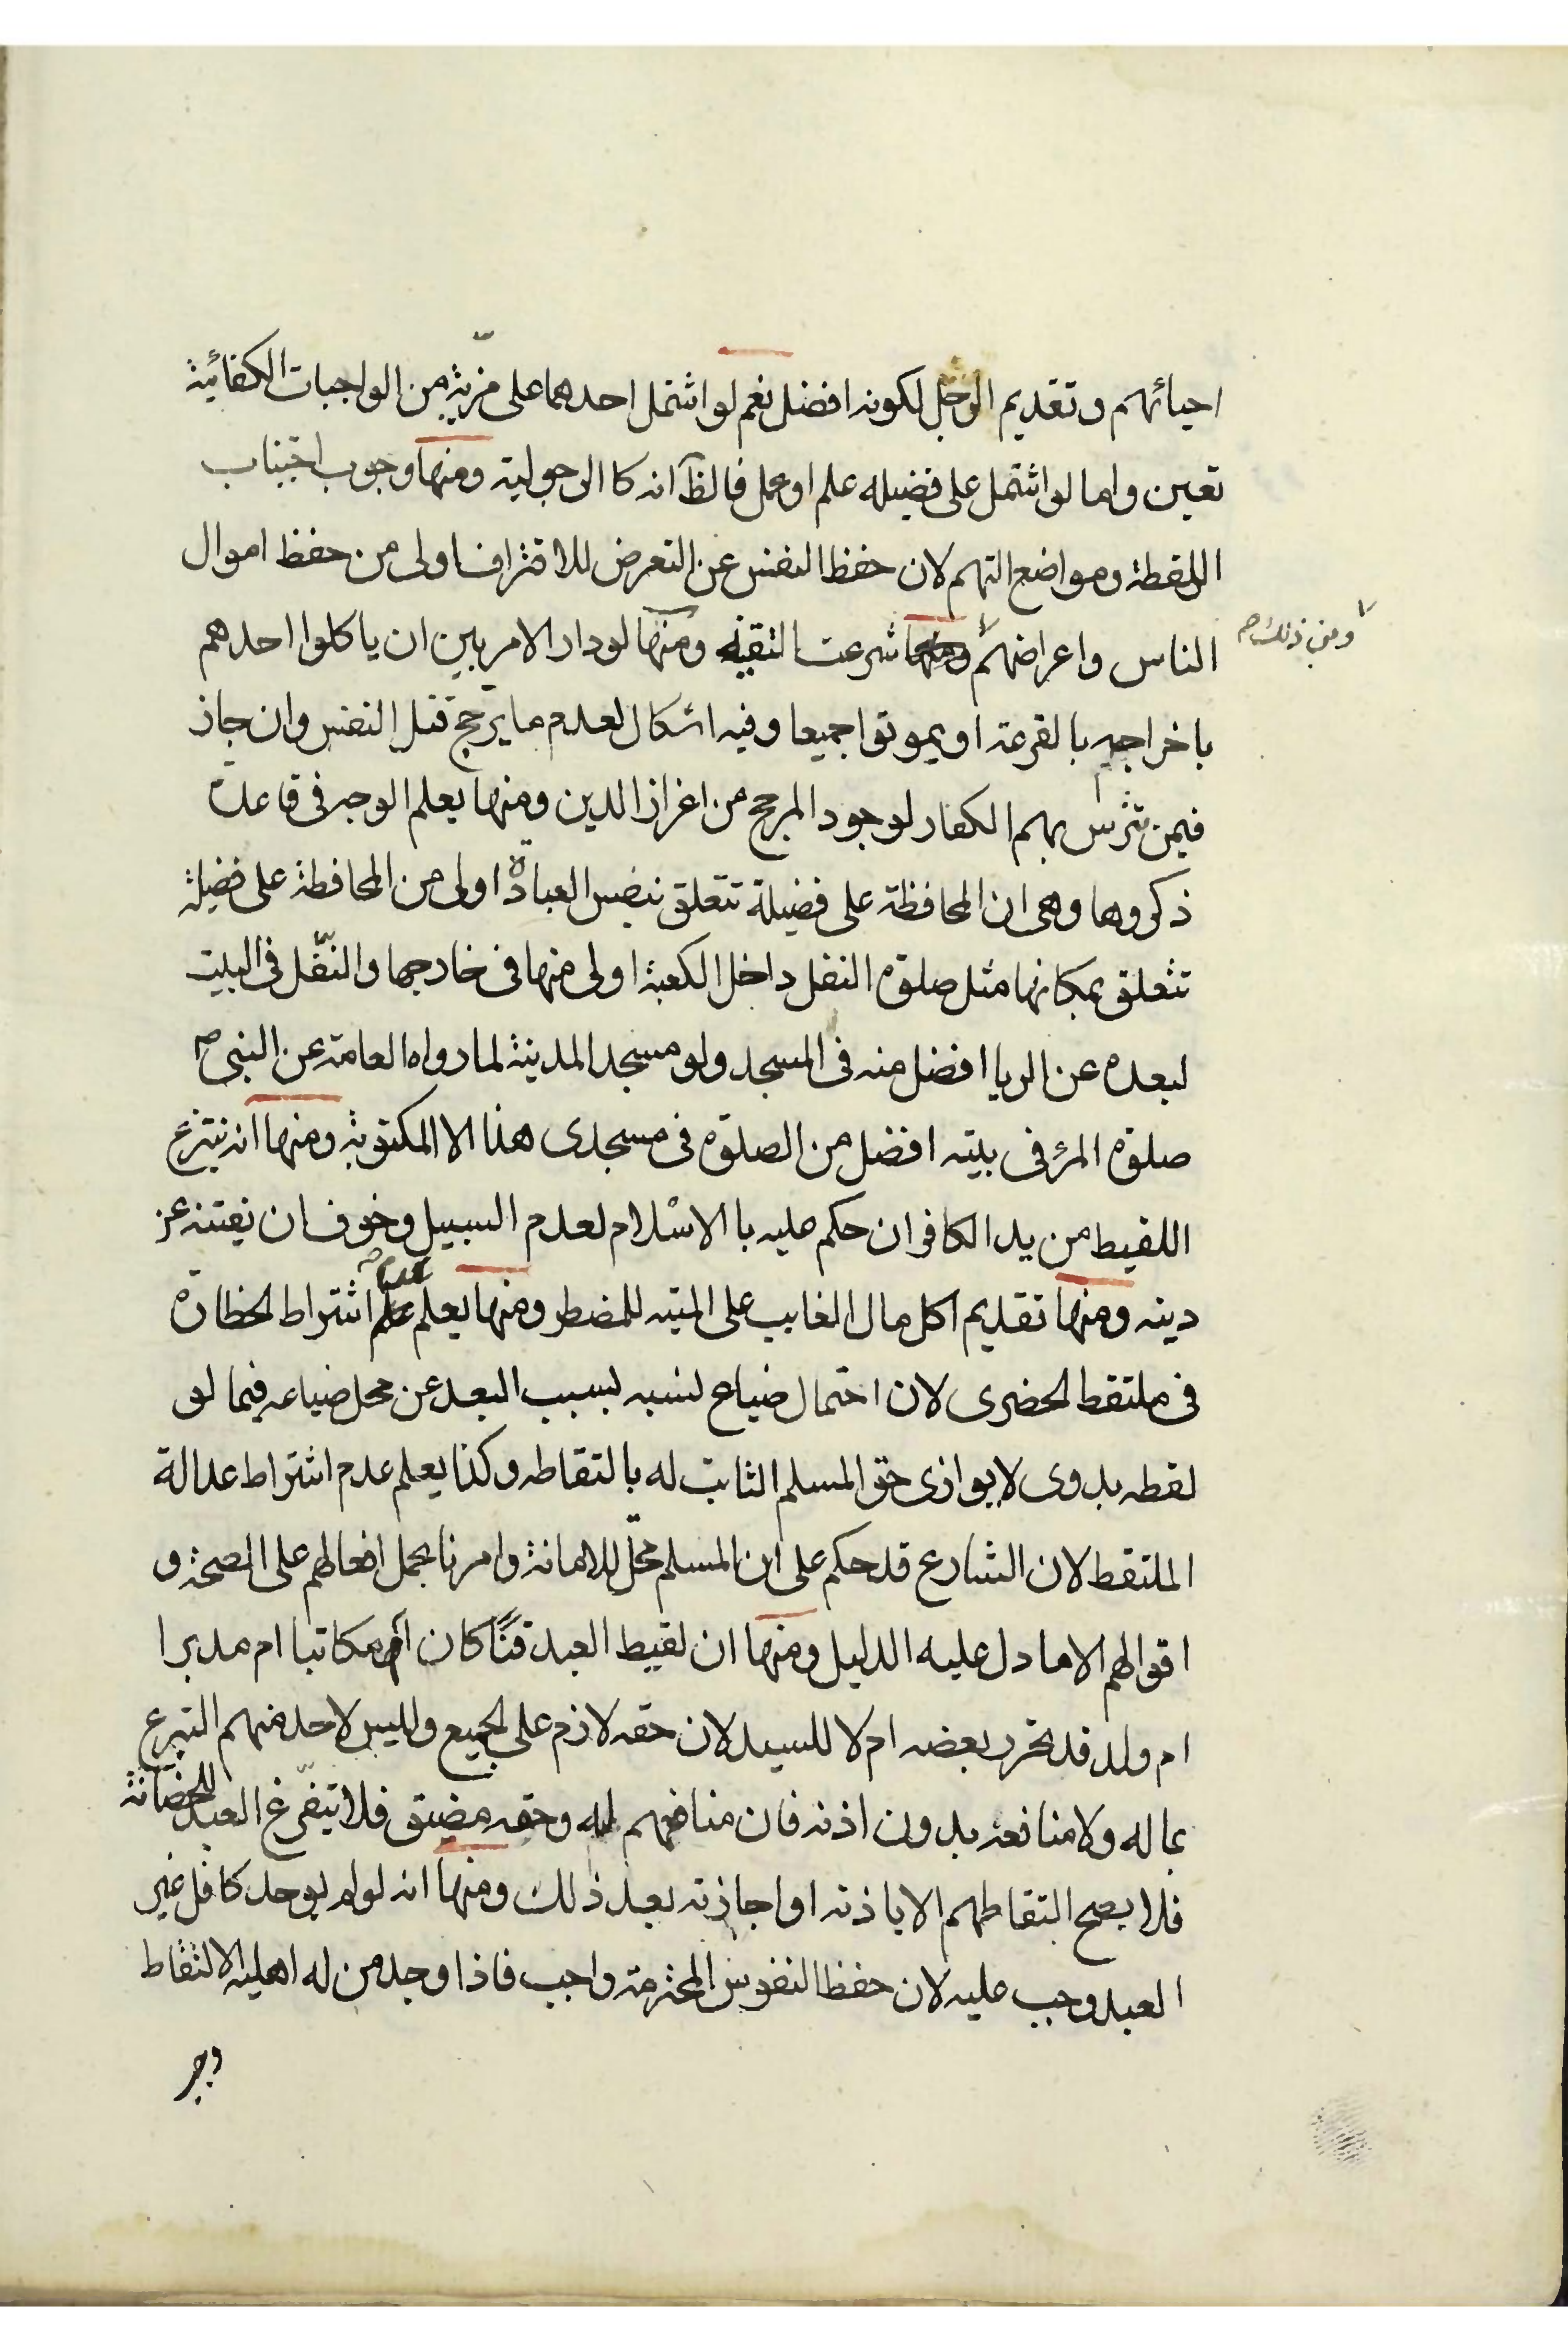 احيائهم وتقديم الرجل لكونه افضل نعم لو اشتمل احدهما على مزيّة من الواجبات الكفائية
تعين واما لو اشتمل على فضيله علم او عمل فالظ انه كا الرجولية ومنها وجوب اجتناب
اللقطة ومواضع التهم لان حفظ النفس عن التعرض للاقتراف اولى من حفظ اموال
الناس واعراضهم شرعت التقيّه ومنها لو دار الامر بين ان ياكلوا احدهم
ومن ذلك صح
باخراجه بالقرعة او يموتوا جميعا وفيه اشكال لعدم ما يرجح قتل النفس وان جاز
فيمن تترس بهم الكفار لوجود المرجح من اعزاز الدين ومنها يعلم الوجه في قاعدة
ذكروها وهى ان المحافظة على فضيلة تتعلق بنفس العبادة اولى من المحافظة على فضيلة
تتعلق بمكانها مثل صلوة النفل داخل الكعبة اولى منها في خارجها والنّفل في البيت
لبعده عن الريا افضل منه في المسجد ولو مسجد المدينة لما رواه العامة عن النبي ص
صلوة المرء في بيته افضل من الصلوة في مسجدى هذا الا المكتوبة ومنها انه ينتزع
اللقيط من يد الكافر ان حكم عليه با الاسلام لعدم السبيل وخوف ان يفتنه عن
دينه ومنها تقديم اكل مال الغايب على الميته للمضطر ومنها يعلم عدم اشتراط الحظارة
في ملتقط الحضرى لان احتمال ضياع نسبه بسبب البعد عن محل ضياعه فيما لو
لقطه بدوى لا يوازى حق المسلم الثابت له بالتقاطه وكذا يعلم عدم اشتراط عدالة
الملتقط لان الشارع قد حكم على ان المسلم محلّ للامانة وامرنا بحمل افعالهم على الصحة و
اقوالهم الا ما دل عليه الدليل ومنها ان لقيط العبد قنًّا كان ام مكاتبا ام مدبرا
ام ولد قد تحرر بعضه ام لا للسيد لان حقه لازم على الجميع وليس لاحد منهم التبرع
بماله ولا منافعه بدون اذنه فان منافعهم له وحقه مضيق فلا يتفّرغ العبد للحضانة
فلا يصح التقاطهم الا باذنه او اجازته بعد ذلك ومنها انه لو لم يوجد كافل غير
العبد وجب عليه لان حفظ النفوس المحترمة واجب فاذا وجد من له اهلية الالتقاط
وجب